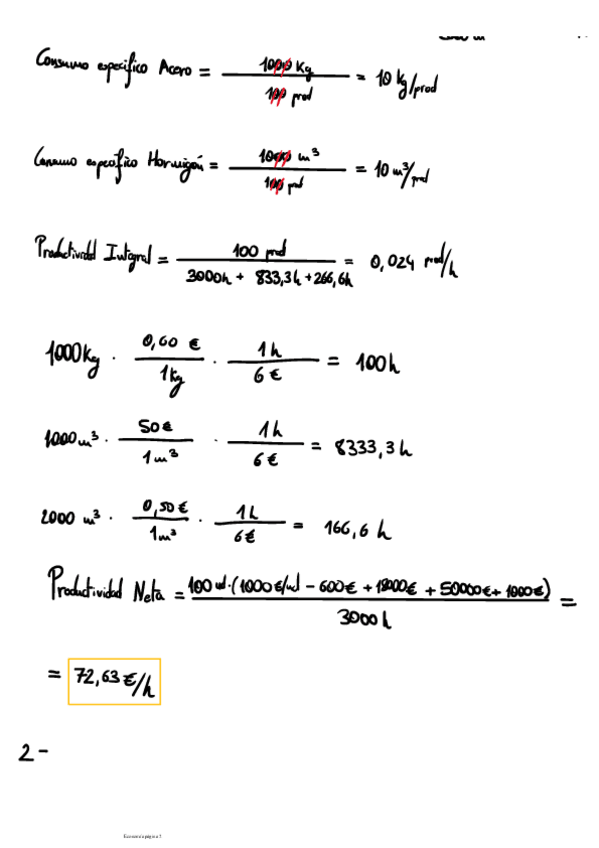 Consumo específico Acero = 1000 Kg / 100 prod = 10 kg/prod
Consumo específico Hormigón = 1000 m³ / 100 prod = 10 m³/prod
Productividad Integral = 100 prod / 3000h + 833,3h + 266,6h = 0,024 prod/h
1000Kg · 0,60 € / 1kg · 1h / 6€ = 100h
1000m³ · 50€ / 1m³ · 1h / 6€ = 8333,3h
2000 m³ · 0,50€ / 1m³ · 1h / 6€ = 166,6 h
Productividad Neta = 100 ud·(1000€/ud - 600€ + 18000€ + 50000€ + 1000€) / 3000h =
= 72,63€/h
2-